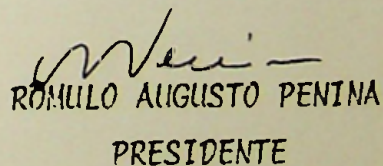 RÔMULO AUGUSTO PENINA
PRESIDENTE